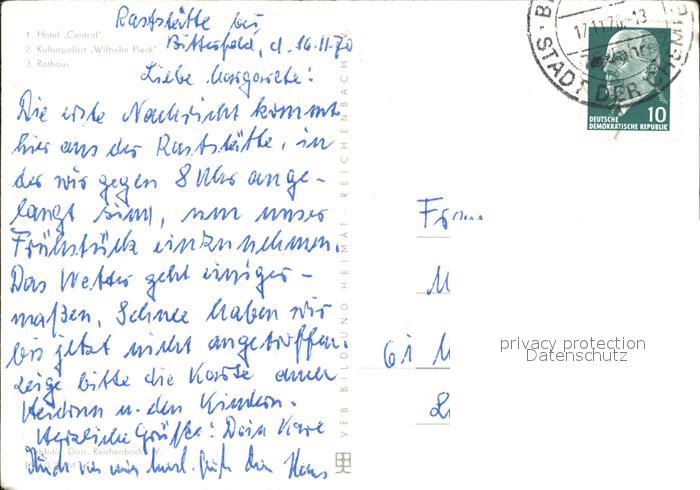 1. Hotel „Central"
2. Kulturpalast „Wilhelm Pieck"
3. Rathaus
Raststätte bei
Bitterfeld, d. 16.11.70
Liebe Margarete!
Die erste Nachricht kommt
hier aus der Raststätte, in
der wir gegen 8 Uhr ange-
langt sind, um unser
Frühstück einzunehmen.
Das Wetter geht einiger-
maßen, Schnee haben wir
bis jetzt nicht angetroffen.
Zeige bitte die Karte auch
Heidrun u. den Kindern.
Herzliche Grüße! Dein Karl
Auch von mir herzl. Grüße Hans
VEB BILD UND HEIMAT · REICHENBACH
Foto: Darr, Reichenbach
17.11.70-13
STADT DER CHEMIE
10
DEUTSCHE
DEMOKRATISCHE REPUBLIK
Frau
M
61 M
L
privacy protection
Datenschutz